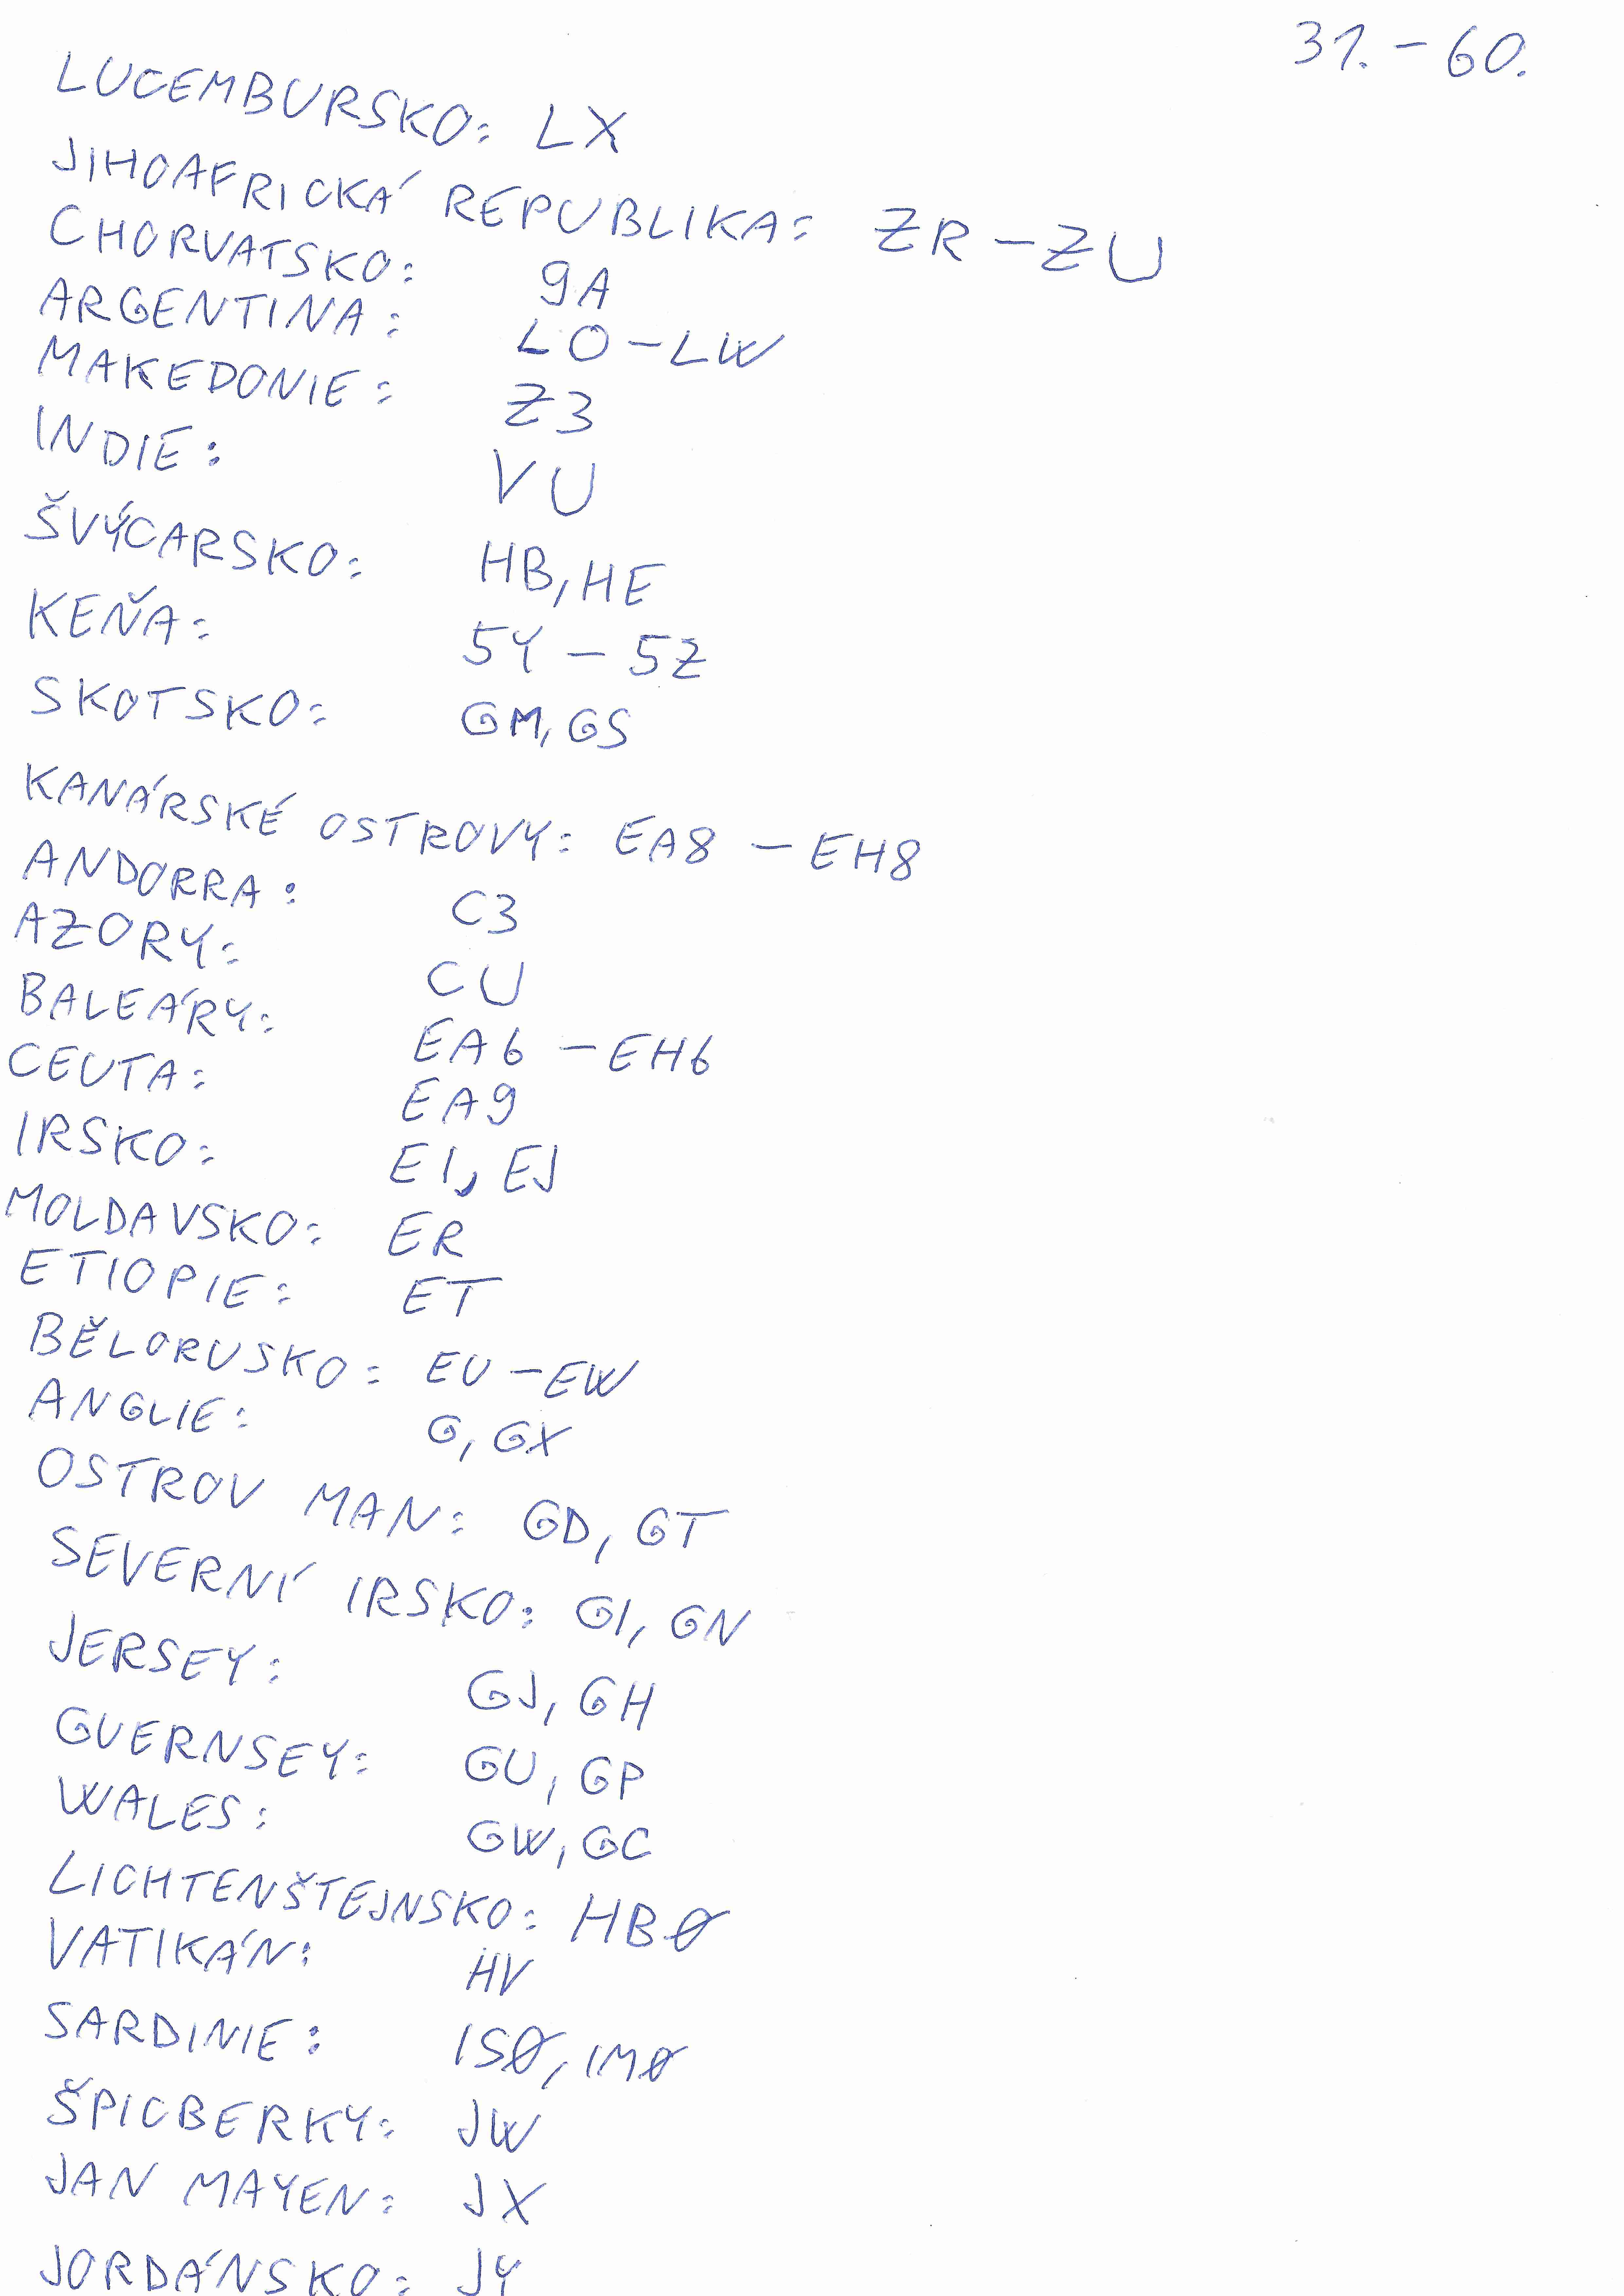 31. – 60.
LUCEMBURSKO: LX
JIHOAFRICKÁ REPUBLIKA: ZR – ZU
CHORVATSKO: 9A
ARGENTINA: LO – LW
MAKEDONIE: Z3
INDIE: VU
ŠVÝCARSKO: HB, HE
KEŇA: 5Y – 5Z
SKOTSKO: GM, GS
KANÁRSKÉ OSTROVY: EA8 – EH8
ANDORRA: C3
AZORY: CU
BALEÁRY: EA6 – EH6
CEUTA: EA9
IRSKO: EI, EJ
MOLDAVSKO: ER
ETIOPIE: ET
BĚLORUSKO: EU – EW
ANGLIE: G, GX
OSTROV MAN: GD, GT
SEVERNÍ IRSKO: GI, GN
JERSEY: GJ, GH
GUERNSEY: GU, GP
WALES: GW, GC
LICHTENŠTEJNSKO: HBØ
VATIKÁN: HV
SARDINIE: ISØ, IMØ
ŠPICBERKY: JW
JAN MAYEN: JX
JORDÁNSKO: JY